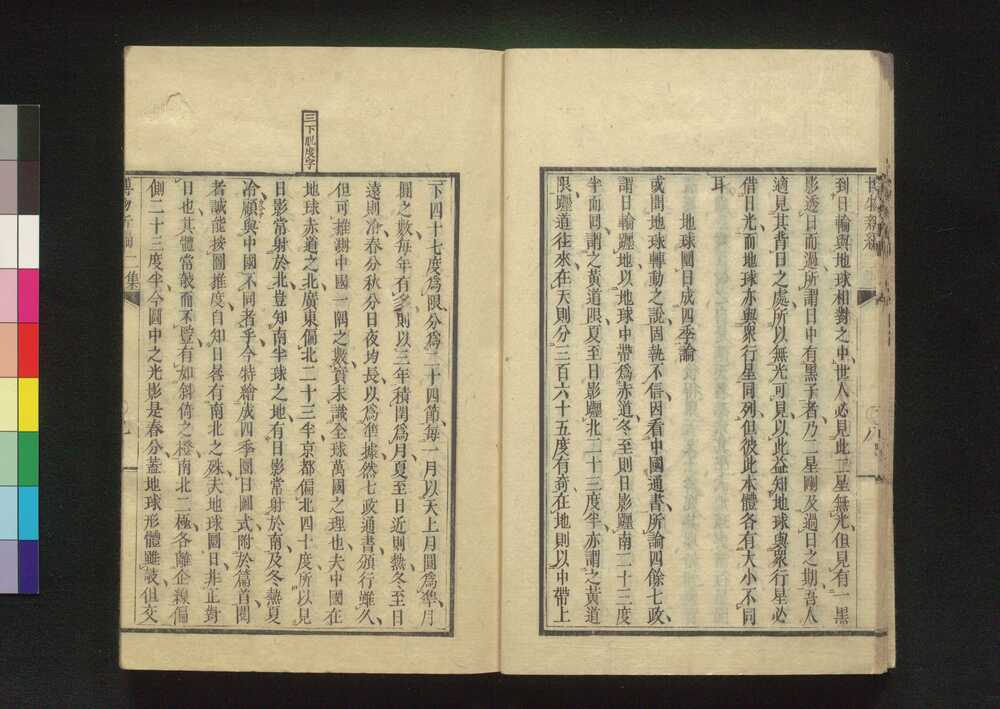 博物新編
八
到日輪與地球相對之中、世人必見此二星無光、但見有一黑
影透日而過、所謂日中有黑子者、乃二星剛及過日之期、吾人
適見其背日之處、所以無光可見、以此益知地球與眾行星必
借日光、而地球亦與眾行星同列、但彼此本體各有大小不同
耳、
地球圜日成四季論
或問地球轉動之說、固執不信、因看中國通書所論四餘七政、
謂日輪躔地、以地球中帶爲赤道、冬至則日影躔南二十三度
半而囘、謂之黃道限、夏至日影躔北二十三度半、亦謂之黃道
限、躔道往來、在天則分三百六十五度有竒、在地則以中帶上
三下脫度字
下四十七度爲限、分爲二十四節、每一月以天上月圓爲準、月
圓之數每年有多、則以三年積閏爲月、夏至日近則熱、冬至日
遠則冷、春分秋分日夜均長、以爲準據、然七政通書頒行雖久、
但可推測中國一隅之數、實未識全球萬國之理也、夫中國在
地球赤道之北、廣東偏北二十三半、京都偏北四十度、所以見
日影常射於北、豈知南半球之地、有日影常射於南、及冬熱夏
冷、顛與中國不同者乎、今特繪成四季圜日圖式、附於篇首、閱
者誠能按圖推度、自知日晷有南北之殊、夫地球圜日、非正對
日也、其體常欹而不豎、有如斜倚之橙、南北二極、各離企線偏
側二十三度半、今圖中之光影是春分、蓋地球形體雖欹、但交
博物新編二集